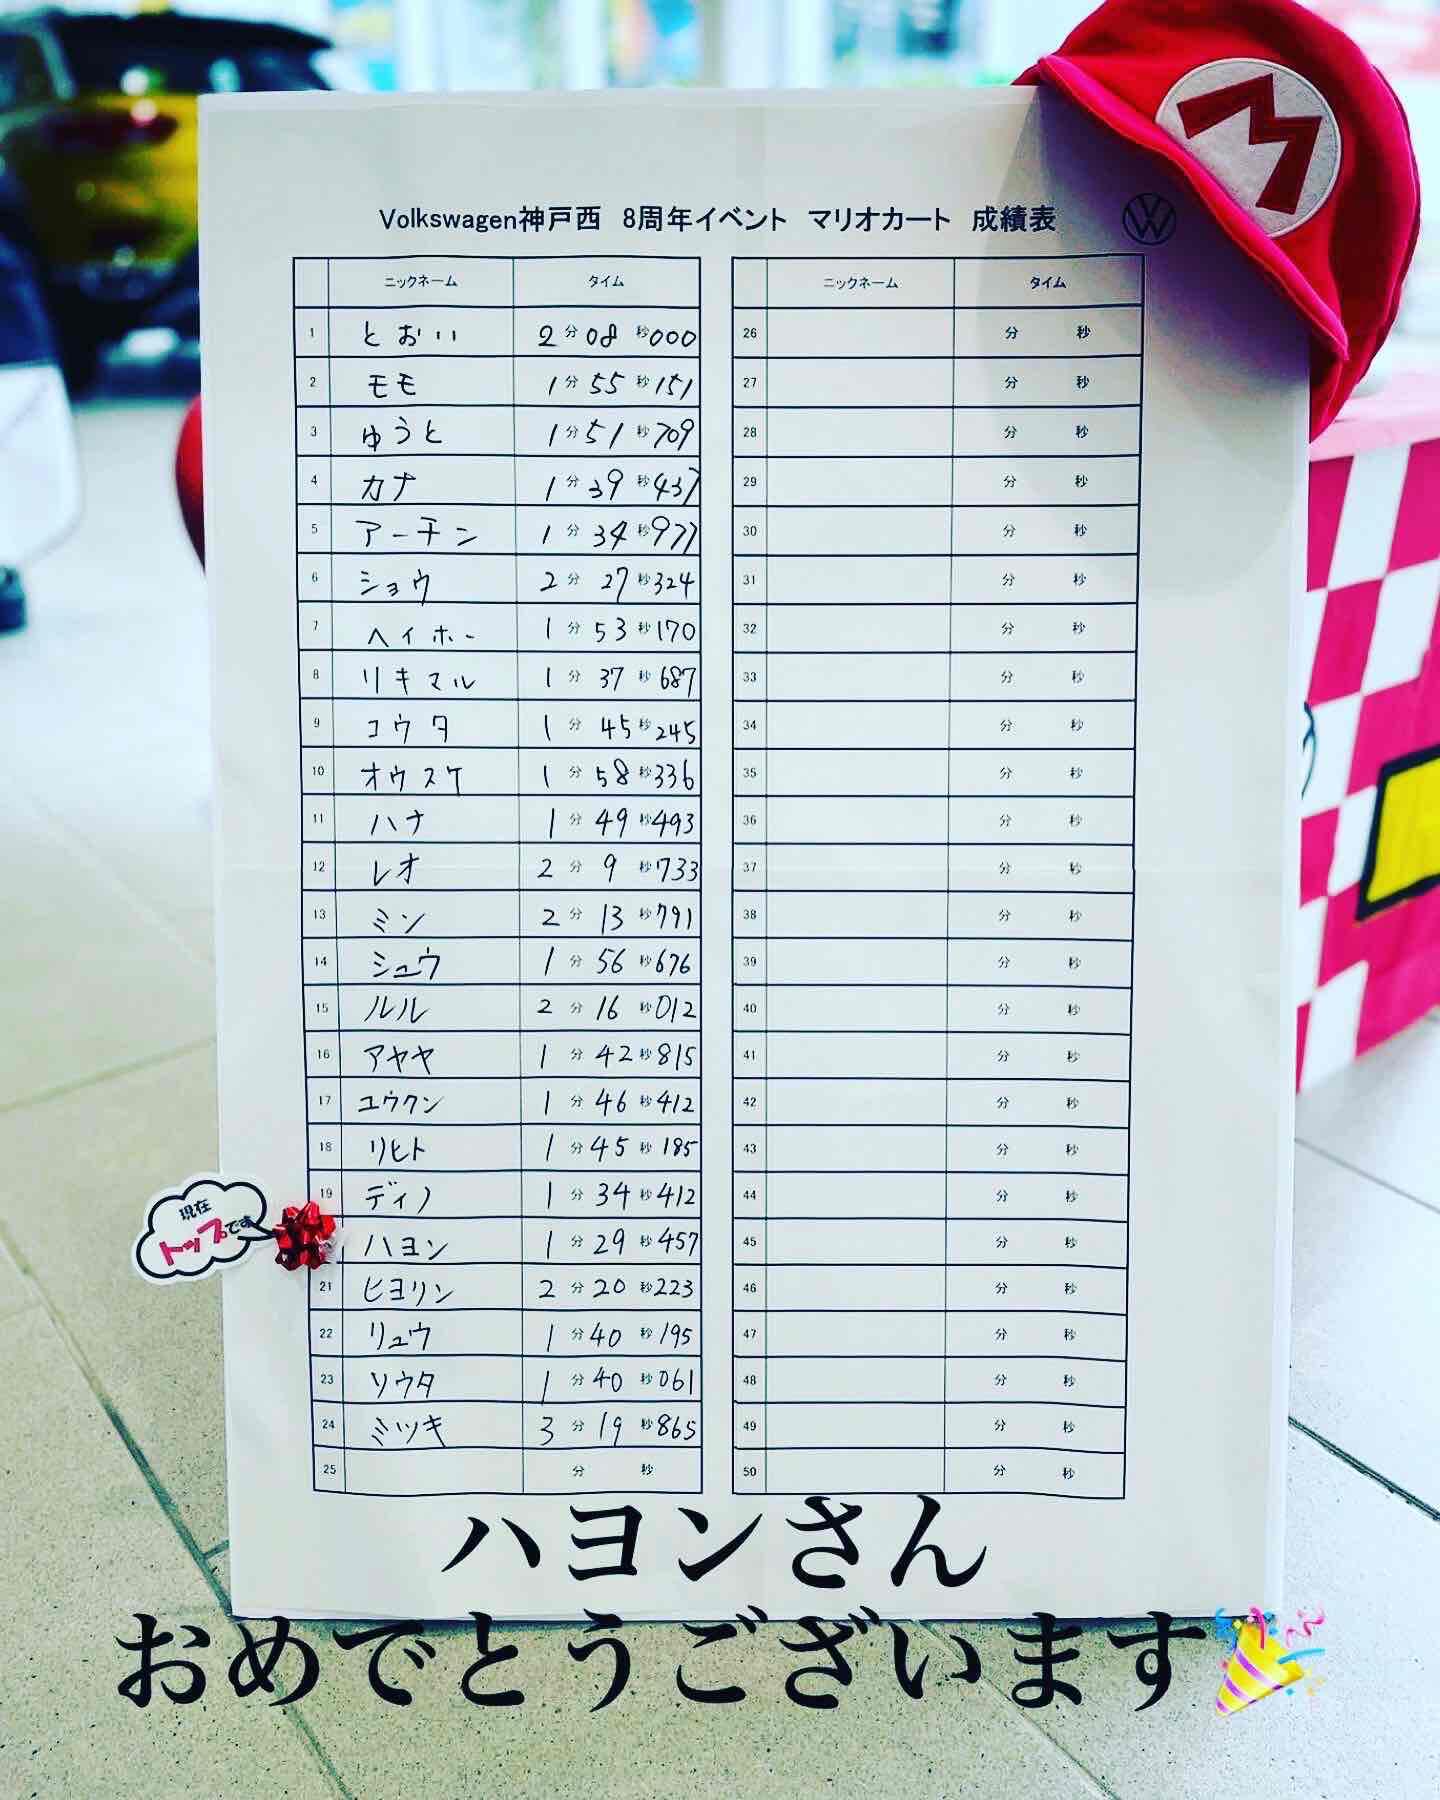 M
Volkswagen神戸西 8周年イベント マリオカート 成績表
ニックネーム タイム
1 とおい 2分08秒000
2 モモ 1分55秒151
3 ゆうと 1分51秒709
4 カナ 1分39秒437
5 アーチン 1分34秒977
6 ショウ 2分27秒324
7 ヘイホー 1分53秒170
8 リキマル 1分37秒687
9 コウタ 1分45秒245
10 オウスケ 1分58秒336
11 ハナ 1分49秒493
12 レオ 2分9秒733
13 ミン 2分13秒791
14 シュウ 1分56秒676
15 ルル 2分16秒012
16 アヤヤ 1分42秒815
17 ユウクン 1分46秒412
18 リヒト 1分45秒185
19 ディノ 1分34秒412
現在
トップです
ハヨン 1分29秒457
21 ヒヨリン 2分20秒223
22 リュウ 1分40秒195
23 ソウタ 1分40秒061
24 ミツキ 3分19秒865
25 分 秒
ニックネーム タイム
26 分 秒
27 分 秒
28 分 秒
29 分 秒
30 分 秒
31 分 秒
32 分 秒
33 分 秒
34 分 秒
35 分 秒
36 分 秒
37 分 秒
38 分 秒
39 分 秒
40 分 秒
41 分 秒
42 分 秒
43 分 秒
44 分 秒
45 分 秒
46 分 秒
47 分 秒
48 分 秒
49 分 秒
50 分 秒
ハヨンさん
おめでとうございます🎉